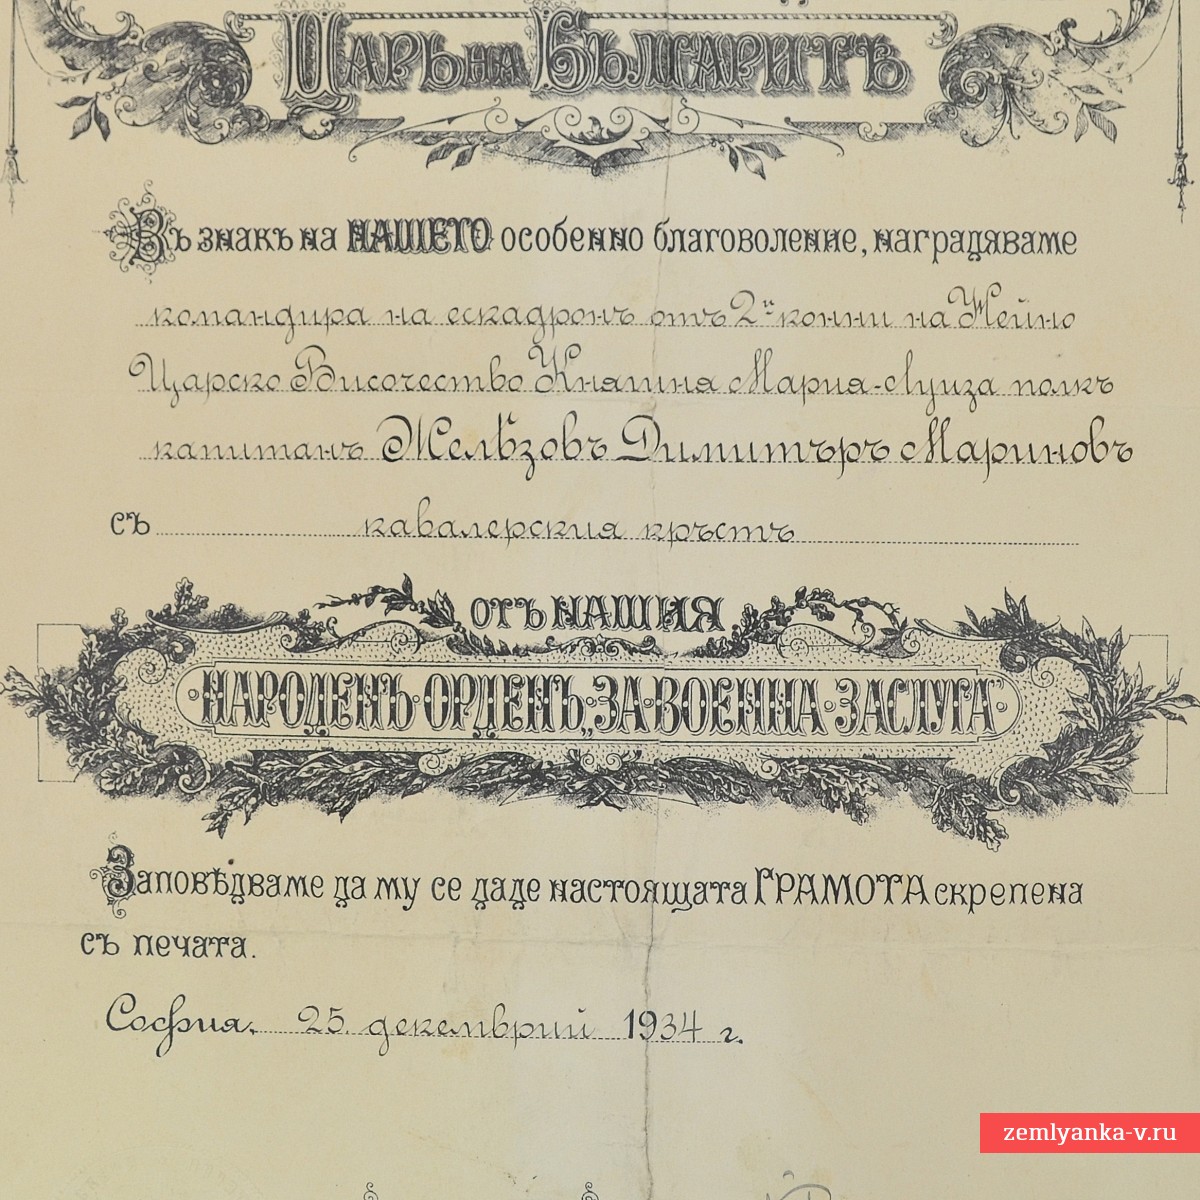 Царь на Българитѣ
Въ знакъ на НАШЕТО особенно благоволение, наградяваме
командира на ескадронъ отъ 2и конни на Нейно
Царско Височество Княгиня Мария-Луиза полкъ
капитанъ Желѣзовъ Димитъръ Мариновъ
съ кавалерския кръстъ
отъ НАШИЯ
НАРОДЕНЪ·ОРДЕНЪ„ЗА·ВОЕННА·ЗАСЛУГА"
Заповѣдваме да му се даде настоящата ГРАМОТА скрепена
съ печата.
София, 25. декемврий 1934 г.
zemlyanka-v.ru